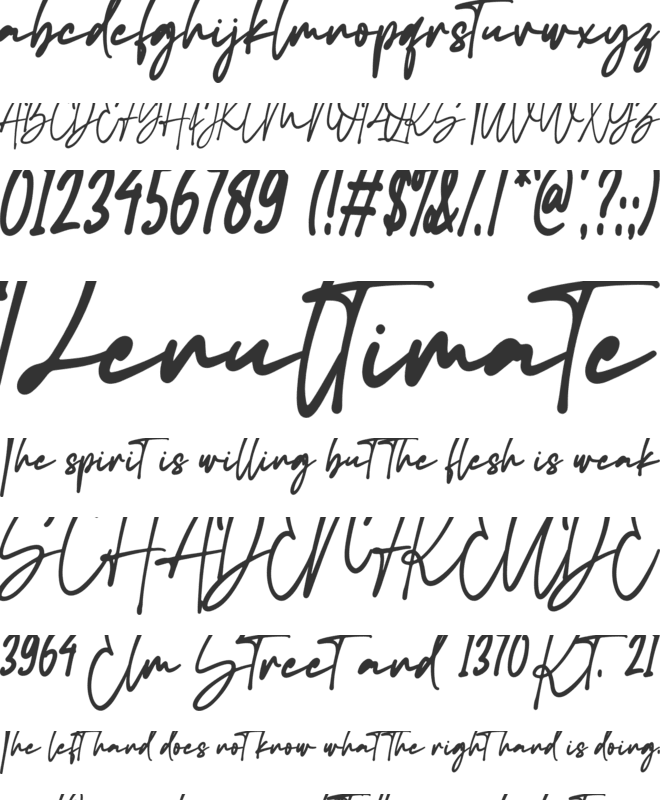 abcdefghijklmnopqrsTuvwxyz
ABCDEFGHIJKLMNOPQRSTUVWXYZ
0123456789 (!#$%&/.|*@,?:;)
Penultimate
The spirit is willing but the flesh is weak
SCHADENFREUDE
3964 Elm Street and 1370 Rt. 21
The left hand does not know what the right hand is doing.